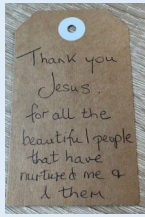 Thank you
Jesus.
for all the
beautiful people
that have
nurtured me &
I them